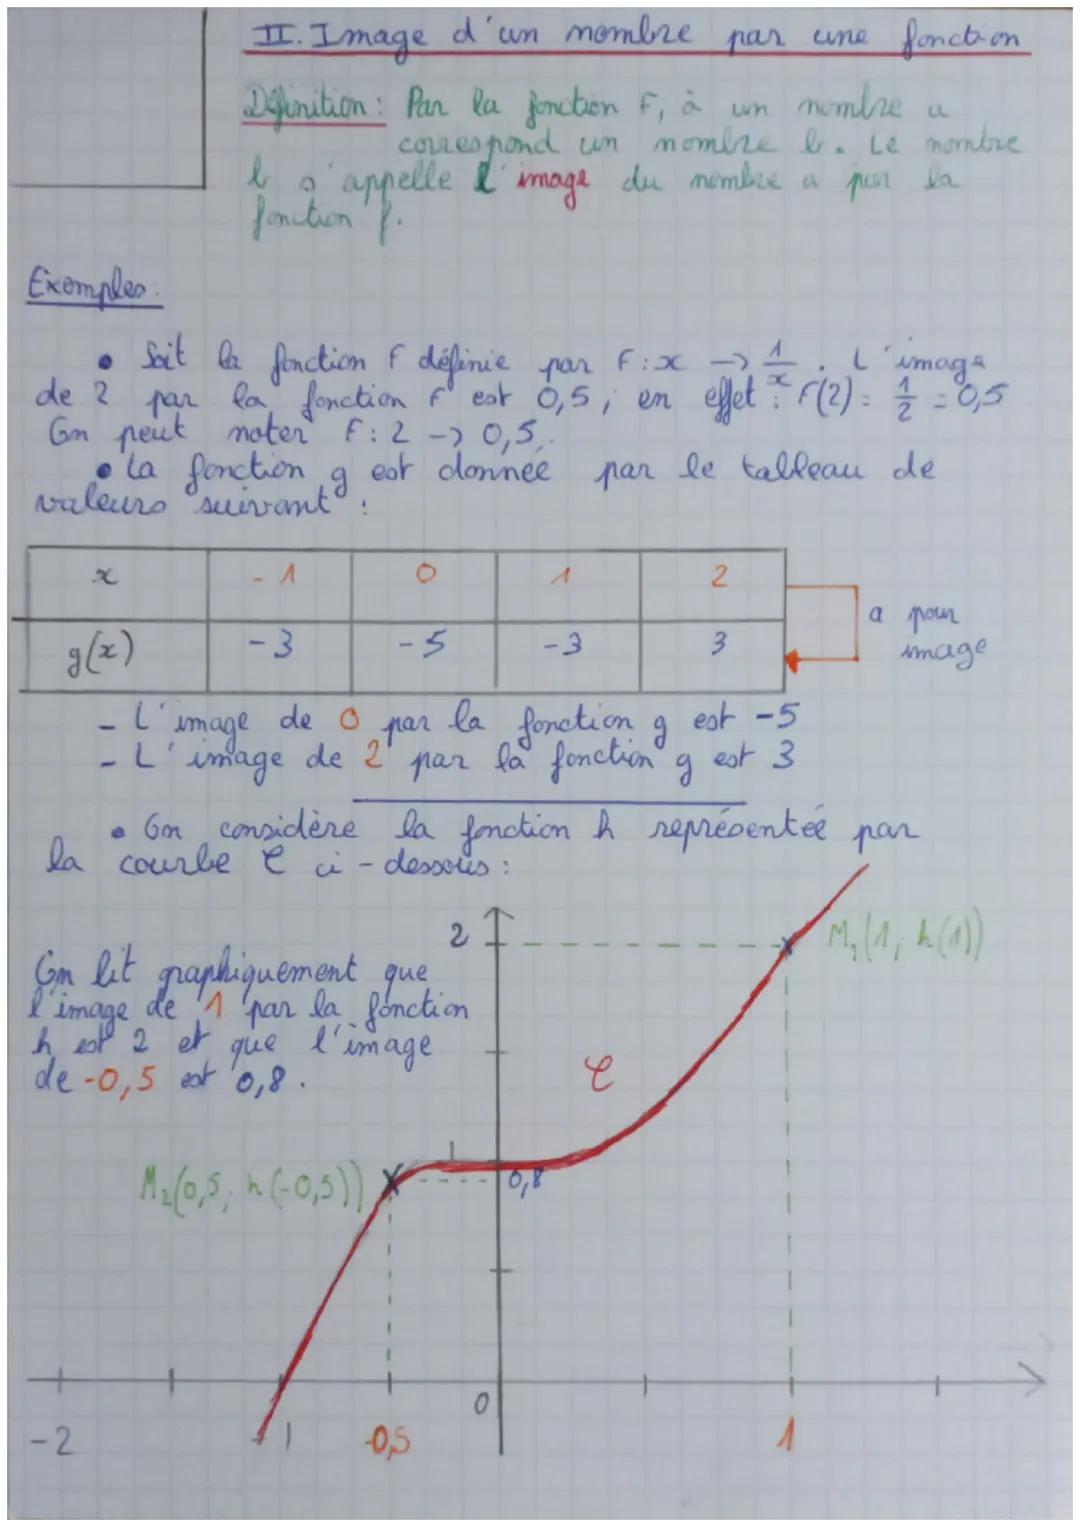 II. Image d'un nombre par une fonction
Définition : Par la fonction F, à un nombre a
correspond un nombre b. Le nombre
b s'appelle l'image du nombre a par la
fonction f.
Exemples :
• Soit la fonction F définie par F : x → 1/x. L'image
de 2 par la fonction F est 0,5 ; en effet : F(2) = 1/2 = 0,5
On peut noter F : 2 → 0,5.
• La fonction g est donnée par le tableau de
valeurs suivant :
x -1 0 1 2
g(x) -3 -5 -3 3
a pour
image
- L'image de 0 par la fonction g est -5
- L'image de 2 par la fonction g est 3
• On considère la fonction h représentée par
la courbe C ci-dessous :
2
M₁(1; h(1))
On lit graphiquement que
l'image de 1 par la fonction
h est 2 et que l'image
de -0,5 est 0,8.
C
1
M₂(0,5; h(-0,5))
0,8
0
-2 -1 -0,5 1